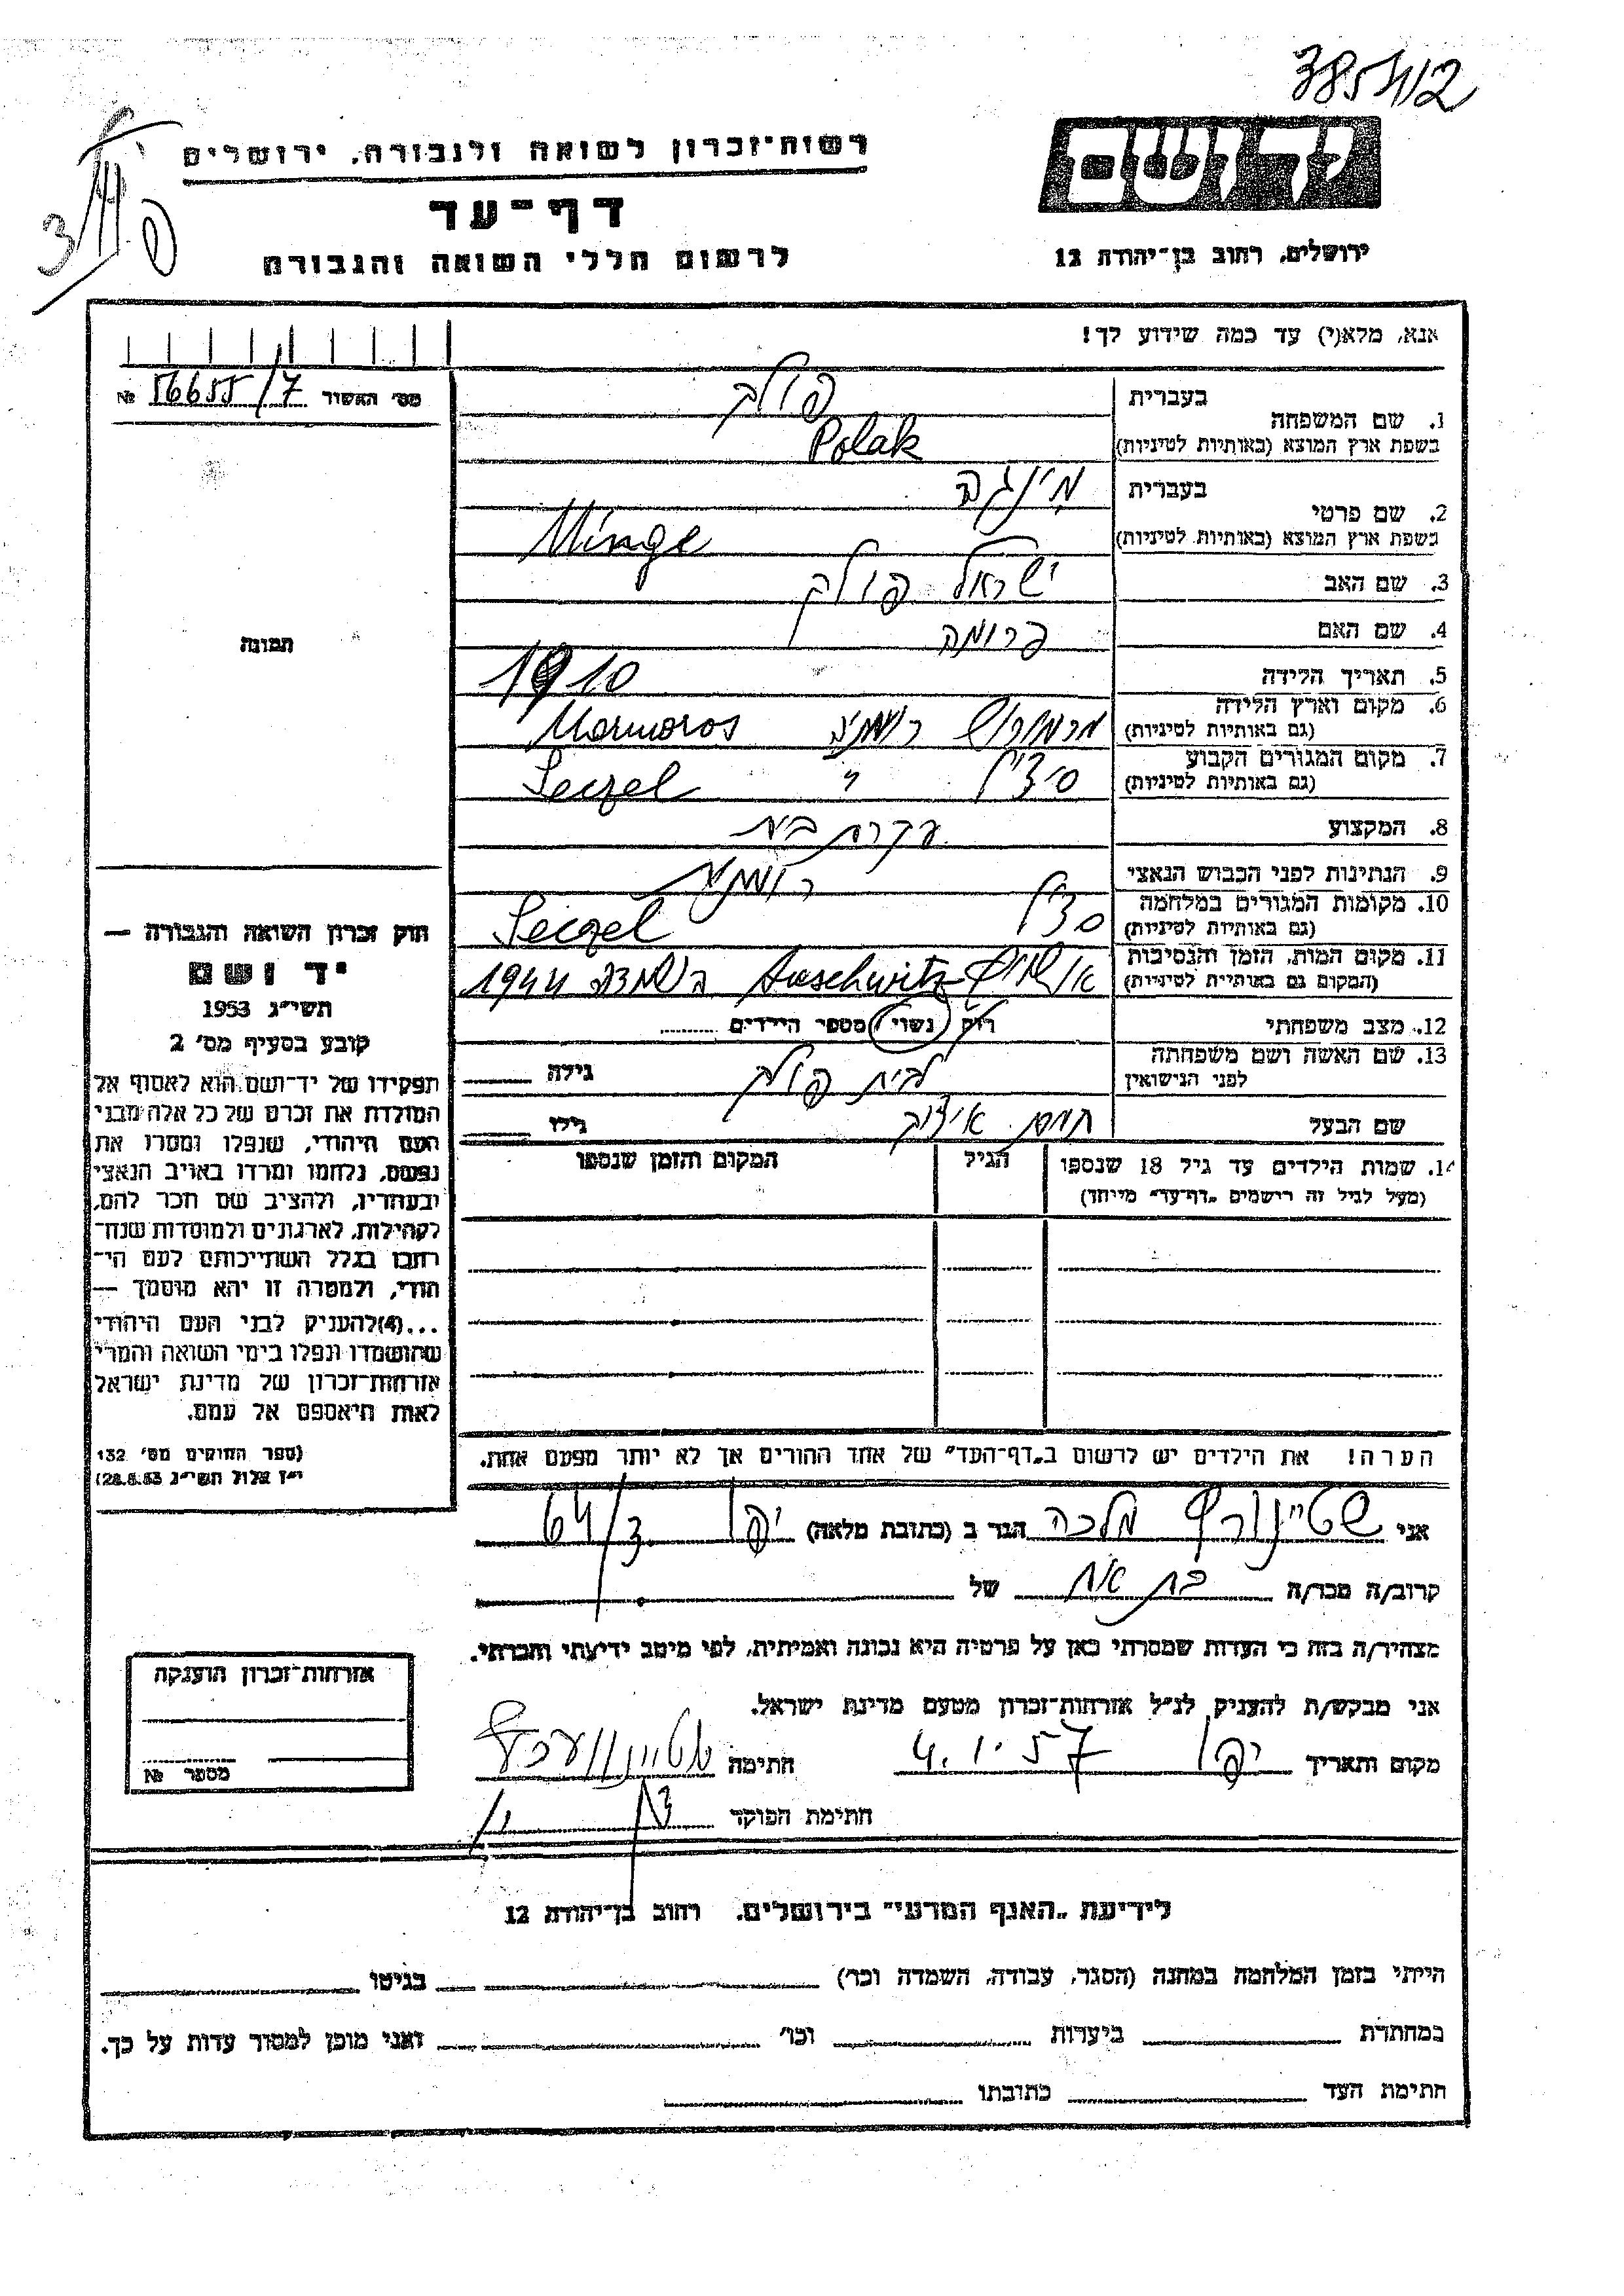 385412
רשות־זכרון לשואה ולגבורה, ירושלים
דף־עד
לרשום חללי השואה והגבורה
ידושם
ירושלים, רחוב בן־יהודה 12
אנא, מלא(י) עד כמה שידוע לך!
מס׳ האשור 16655/7 №
תמונה
1. שם המשפחה
בעברית פולק
בשפת ארץ המוצא (באותיות לטיניות) Polak
2. שם פרטי
בעברית מינגה
בשפת ארץ המוצא (באותיות לטיניות) Minge
3. שם האב ישראל פולק
4. שם האם פרומה
5. תאריך הלידה 1910
6. מקום וארץ הלידה מרמורוש רומניה Marmoros
(גם באותיות לטיניות)
7. מקום המגורים הקבוע סיצ׳ל " Seczel
(גם באותיות לטיניות)
8. המקצוע עקרת בית
9. הנתינות לפני הכבוש הנאצי רומנית
10. מקומות המגורים במלחמה סצ׳ל Seczel
(גם באותיות לטיניות)
11. מקום המות, הזמן והנסיבות אושויץ Auschwitz בהשמדה 1944
(המקום גם באותיות לטיניות)
12. מצב משפחתי רוק / נשוי / מספר הילדים
13. שם האשה ושם משפחתה לבית פולק גילה
לפני הנישואין
שם הבעל איציק גילו
14. שמות הילדים עד גיל 18 שנספו הגיל המקום והזמן שנספו
(מעל לגיל זה רישמים „דף־עד" מייחד)
חוק זכרון השואה והגבורה —
יד ושם
תשי״ג 1953
קובע בסעיף מס׳ 2
תפקידו של יד־ושם הוא לאסוף אל
המולדת את זכרם של כל אלה מבני
העם היהודי, שנפלו ומסרו את
נפשם, נלחמו ומרדו באויב הנאצי
ובעוזריו, ולהציב שם וזכר להם,
לקהילות, לארגונים ולמוסדות שנח־
רחבו בגלל השתייכותם לעם הי־
הודי, ולמטרה זו יהא מוסמך —
...(4)להעניק לבני העם היהודי
שהושמדו ונפלו בימי השואה והמרי
אזרחות־זכרון של מדינת ישראל
לאות היאספם אל עמם.
(ספר החוקים מס׳ 132
י״ז אלול תשי״ג 28.8.53)
הערה! את הילדים יש לרשום ב„דף־העד" של אחד ההורים אך לא יותר מפעם אחת.
אני שטיינורף מלכה הגר ב (כתובת מלאה) יפו 64/3
קרוב/ה מכר/ה בת אח של
מצהיר/ה בזה כי העדות שמסרתי כאן על פרטיה היא נכונה ואמיתית, לפי מיטב ידיעתי והכרתי.
אני מבקש/ת להעניק לנ״ל אזרחות־זכרון מטעם מדינת ישראל.
מקום ותאריך יפו 4.1.57 חתימה
חתימת הפוקד
אזרחות־זכרון הוענקה
מספר №
לידיעת „האגף המדעי" בירושלים, רחוב בן־יהודה 12
הייתי בזמן המלחמה במחנה (הסגר, עבודה, השמדה וכר׳) בגיטו
במחתרת ביערות וכו׳ ואני מוכן למסור עדות על כך.
חתימת העד כתובתו